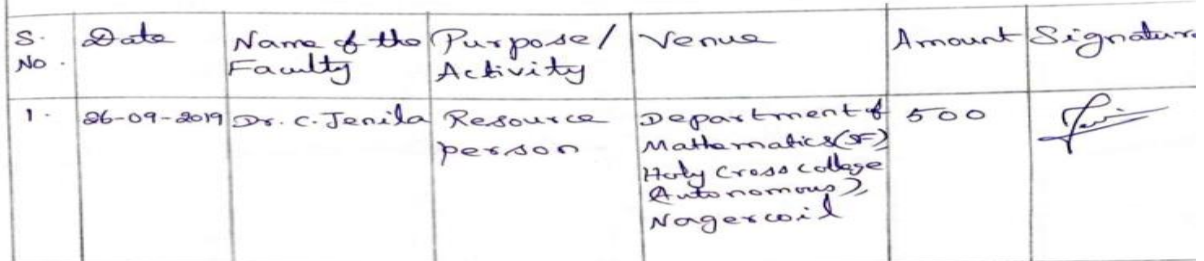 S. No. Date Name of the Faculty Purpose/ Activity Venue Amount Signature
1. 26-09-2019 Dr. C. Jenila Resource person Department of Mathematics(SF) Holy Cross college (Autonomous), Nagercoil 500